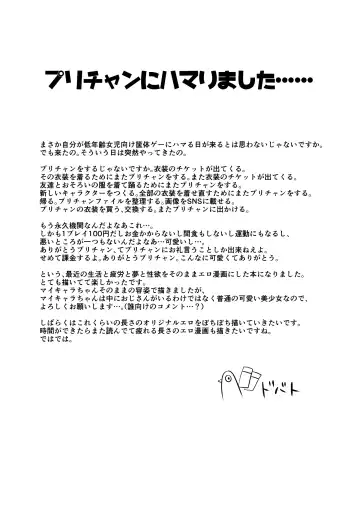 プリチャンにハマりました……
まさか自分が低年齢女児向け筐体ゲーにハマる日が来るとは思わないじゃないですか。
でも来たの。そういう日は突然やってきたの。
プリチャンをするじゃないですか。衣装のチケットが出てくる。
その衣装を着るためにまたプリチャンをする。また衣装のチケットが出てくる。
友達とおそろいの服を着て踊るためにまたプリチャンをする。
新しいキャラクターをつくる。全部の衣装を着せ直すためにまたプリチャンをする。
帰る。プリチャンファイルを整理する。画像をSNSに載せる。
プリチャンの衣装を買う、交換する。またプリチャンに出かける。
もう永久機関なんだよなあこれ…。
しかも1プレイ100円だしお金かからないし間食もしないし運動にもなるし、
悪いところが一つもないんだよなあ…可愛いし…。
ありがとうプリチャン。てプリチャンにお礼言うことしか出来ねえよ。
せめて課金するよ。ありがとうプリチャン。こんなに可愛くてありがとう。
という、最近の生活と疲労と夢と性欲をそのままエロ漫画にした本になりました。
とても描いてて楽しかったです。
マイキャラちゃんそのままの容姿で描きましたが、
マイキャラちゃんは中におじさんがいるわけではなく普通の可愛い美少女なので、
よろしくお願いします…。(誰向けのコメント…？)
しばらくはこれくらいの長さのオリジナルエロをぽちぽち描いていきたいです。
時間ができたらまた読んでて疲れる長さのエロ漫画も描きたいですね。
ではでは。
ドバト